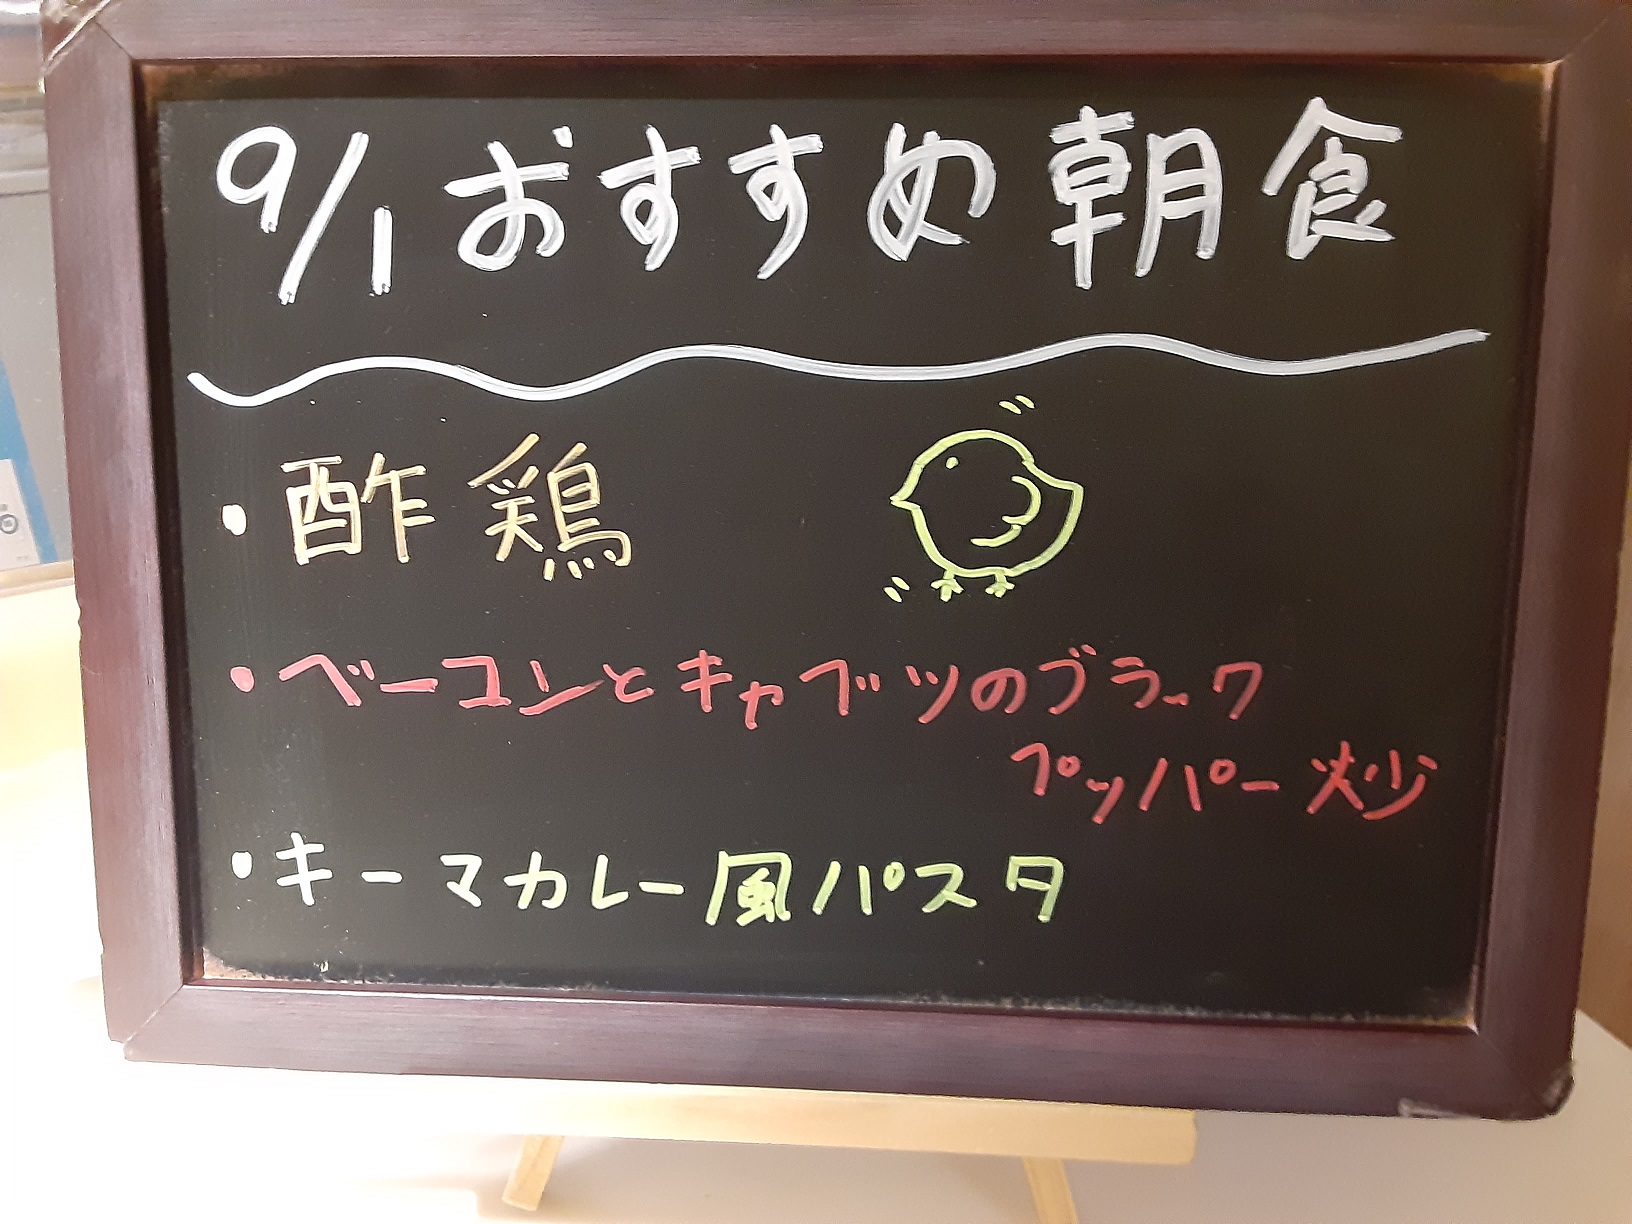 9/1 おすすめ朝食
・酢鶏
・ベーコンとキャベツのブラック
ペッパー炒
・キーマカレー風パスタ